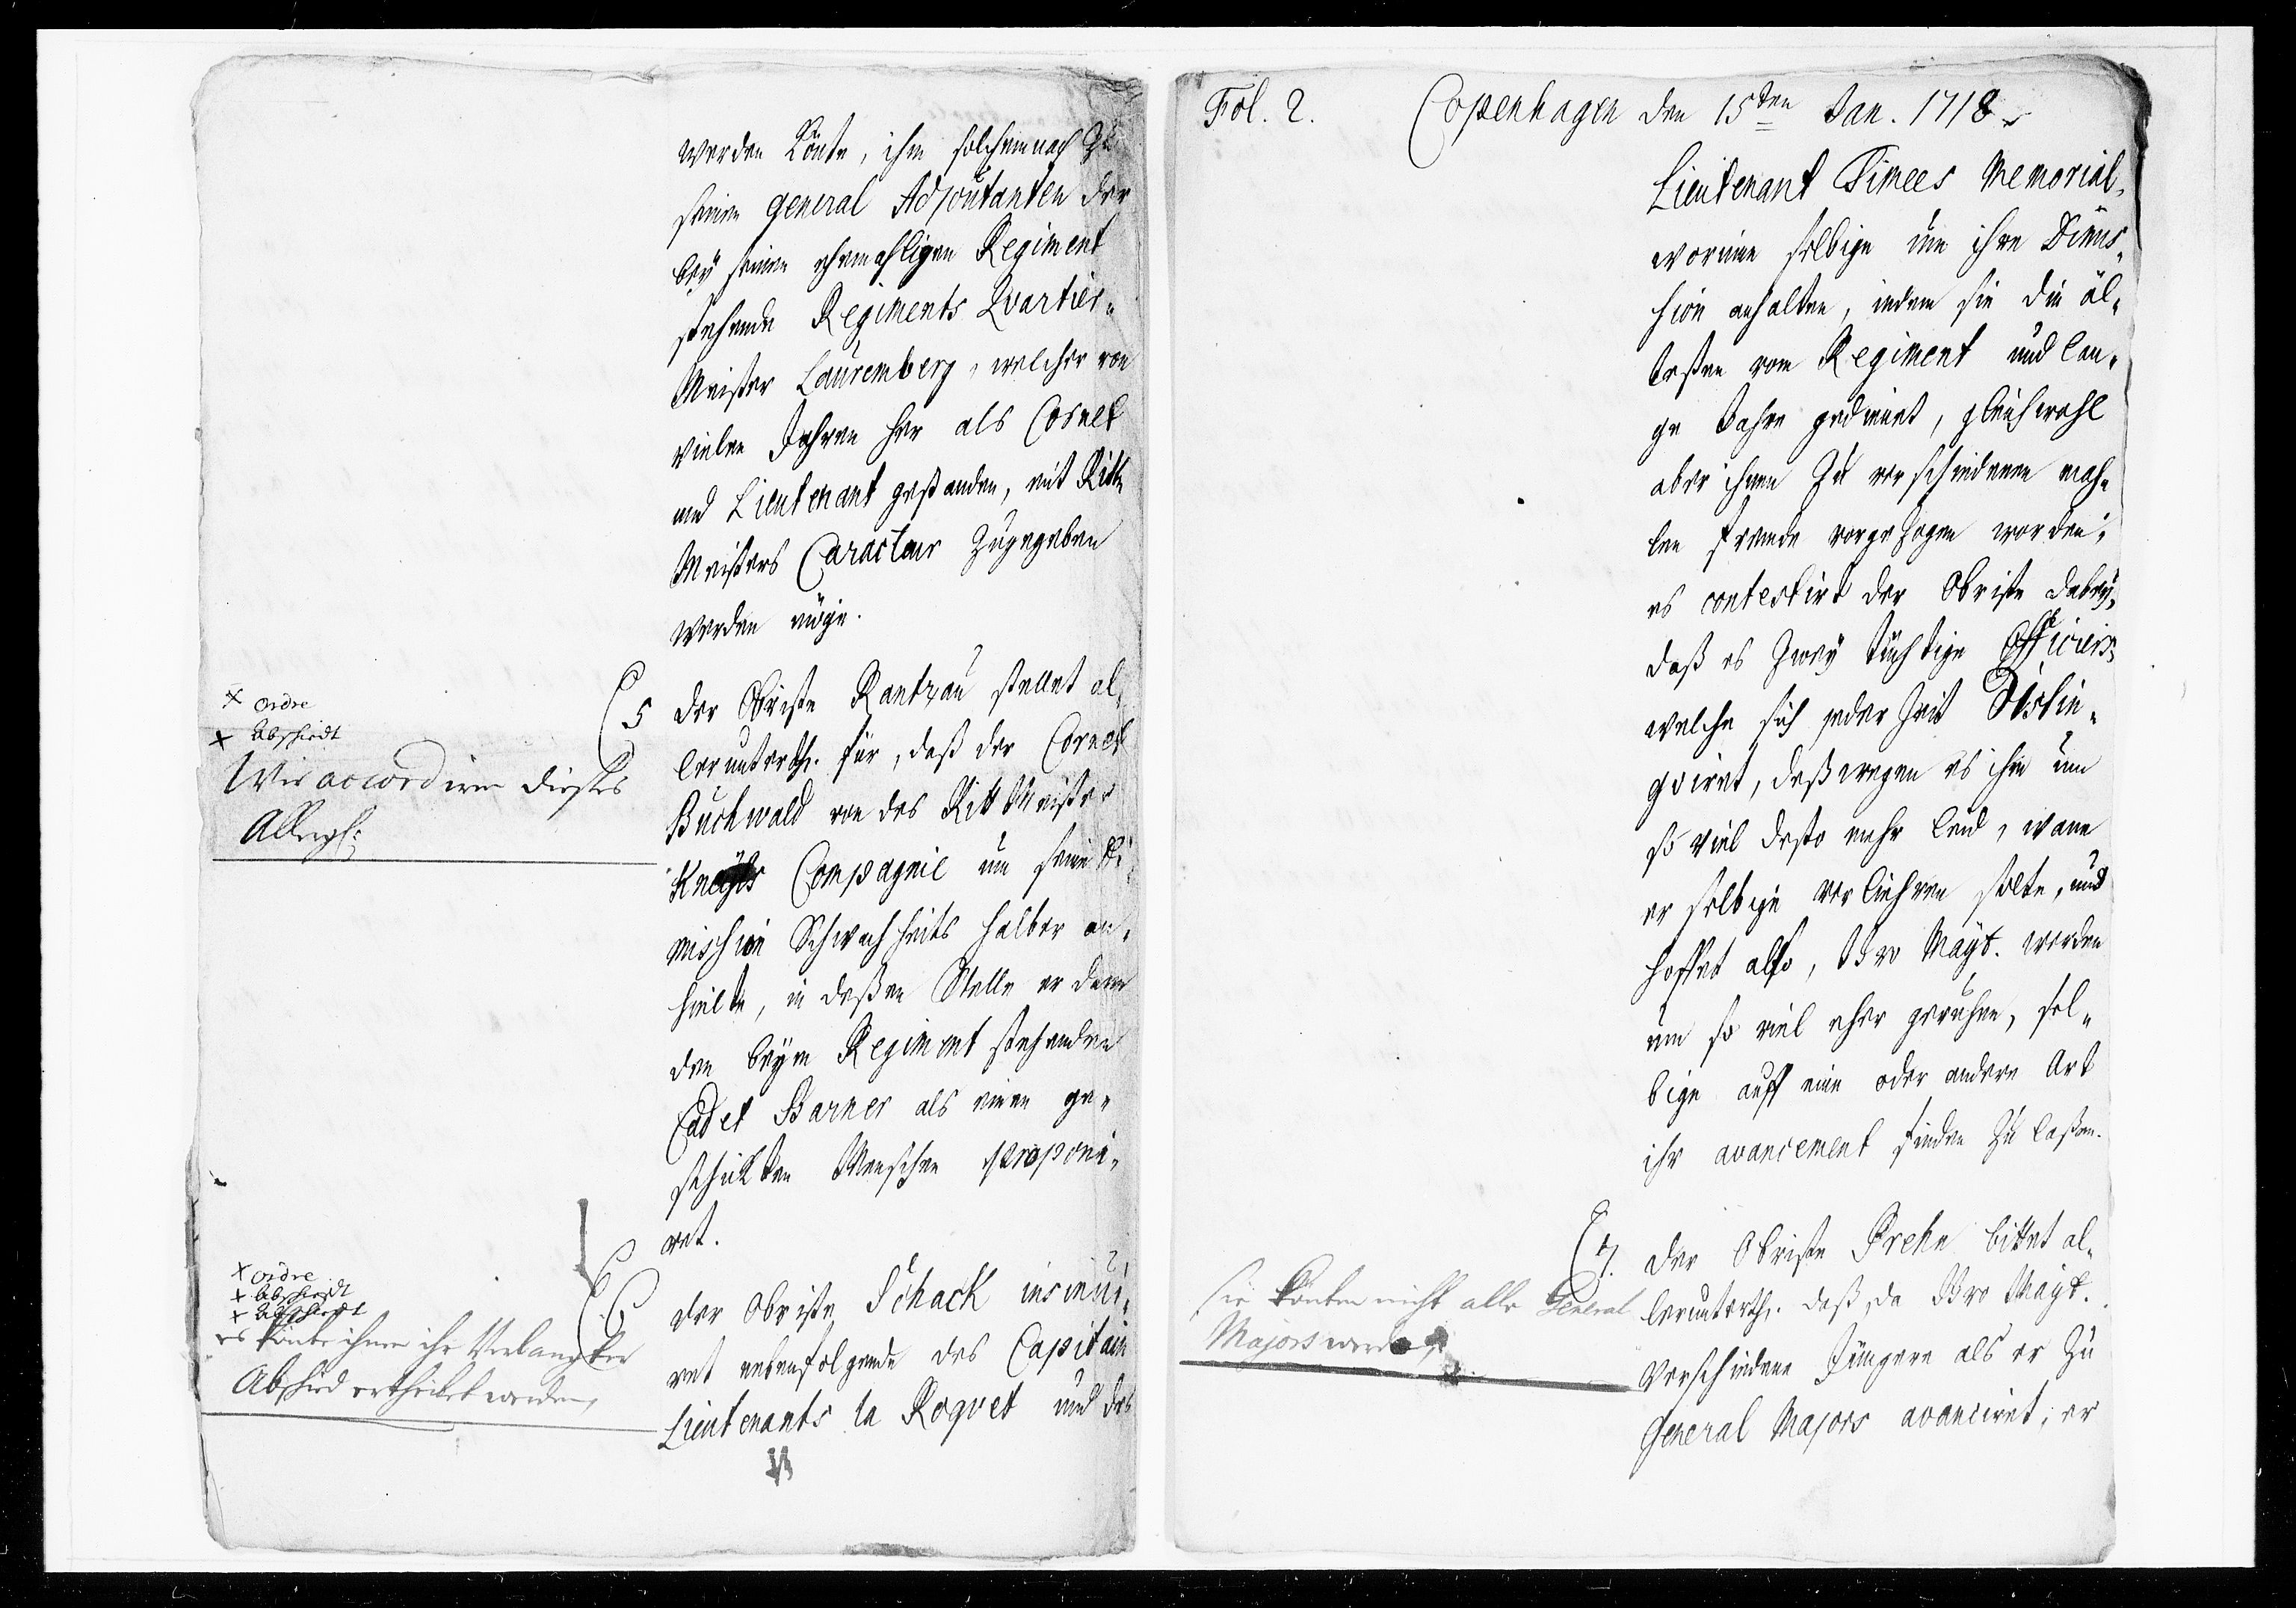 werden könte, ihm solchemnach zu
seinem general Adjoutanten der
bey seinem ehemahligen Regiment
stehende Regiments Qvartier-
Meister Lauremberg, welcher von
vielen Jahren her als Cornet
und Lieutenant gestanden, mit Ritt-
Meisters Caracteur zugegeben
werden möge.
5 Der Obriste Rantzau stellet al-
lerunterth. für, daß der Cornet
Buchwald von des Ritt Meister
Compagnie um seine Di-
mission Schwachheits halber an-
hielte, in deßen Stelle er dann
den beym Regiment stehenden
Cadet Barner als einen ge-
schickten Menschen proponi-
ret.
6 Der Obriste Schack insinui-
ret nebenfolgende des Capitain
Lieutenants la Roqvet und des
x ordre
x Abschiedt
Wir accordiren dieses
Allergh:
x ordre
x Abschiedt
x Abschiedt
es könte ihnen ihr Verlangter
Abschied ertheilet werden,
Fol. 2. Copenhagen den 15ten Jan. 1718
Lieutenant Timees Memorial,
worinne selbige um ihre Dimis-
sion anhalten, indem sie die äl-
testen vom Regiment und lan-
ge Jahre gedienet, gleichwohl
aber ihnen zu verschiedenen mah-
len fremde vorgezogen worden;
es contestirt der Obriste dabey,
daß es zwey tüchtige Officiers,
welche sich jeder Zeit Distin-
gviret, deßwegen es ihm um
so viel desto mehr leid, wann
er selbige verliehren solte, und
hoffet also, Ewr Mayt. werden
um so viel eher geruhen, sel-
bige auff eine oder andere Art
ihr avancement finden zu laßen.
7. Der Obriste Prehn bittet al-
lerunterth. daß, da Ewr Mayt.
verschiedene Jüngere als er zu
General Majors avanciret, er
sie könten nicht alle General
Majors werden